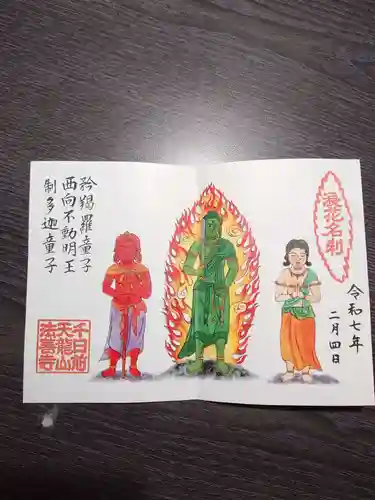 浪花名刹
令和七年
二月四日
矜羯羅童子
西向不動明王
制多迦童子
千日前
天龍山
法善寺